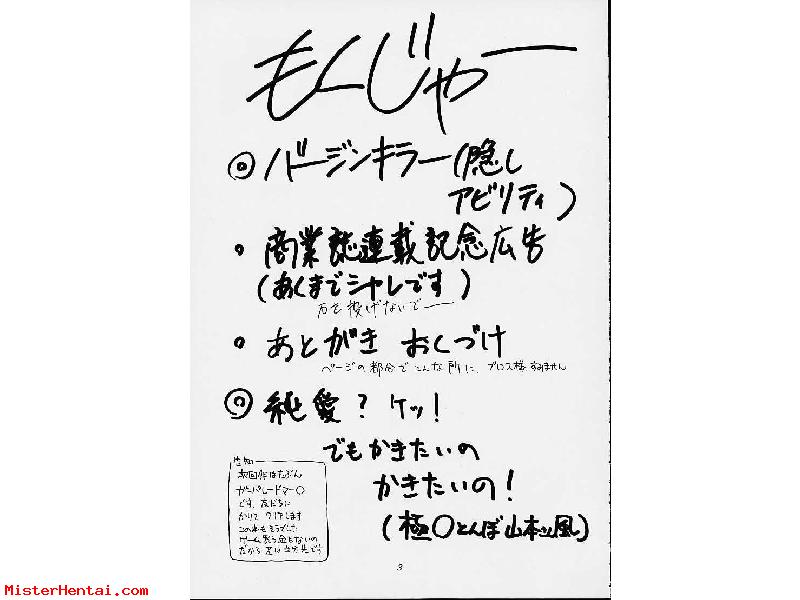 もくじゃー
◎バージンキラー(隠し
アビリティ)
・商業誌連載記念広告
(あくまでシャレです)
石を投げないでー
・あとがき おくづけ
ページの都合でこんな所に、ブロス様すみません
◎純愛？ケッ！
でもかきたいの
かきたいの！
(極○とんぼ山本ッ風)
告知
次回作はたぶん
ガンパレードマー○
です。友だちに
かりて
この本もそうでした
ゲーム買う金もないの
だから
3
MisterHentai.com